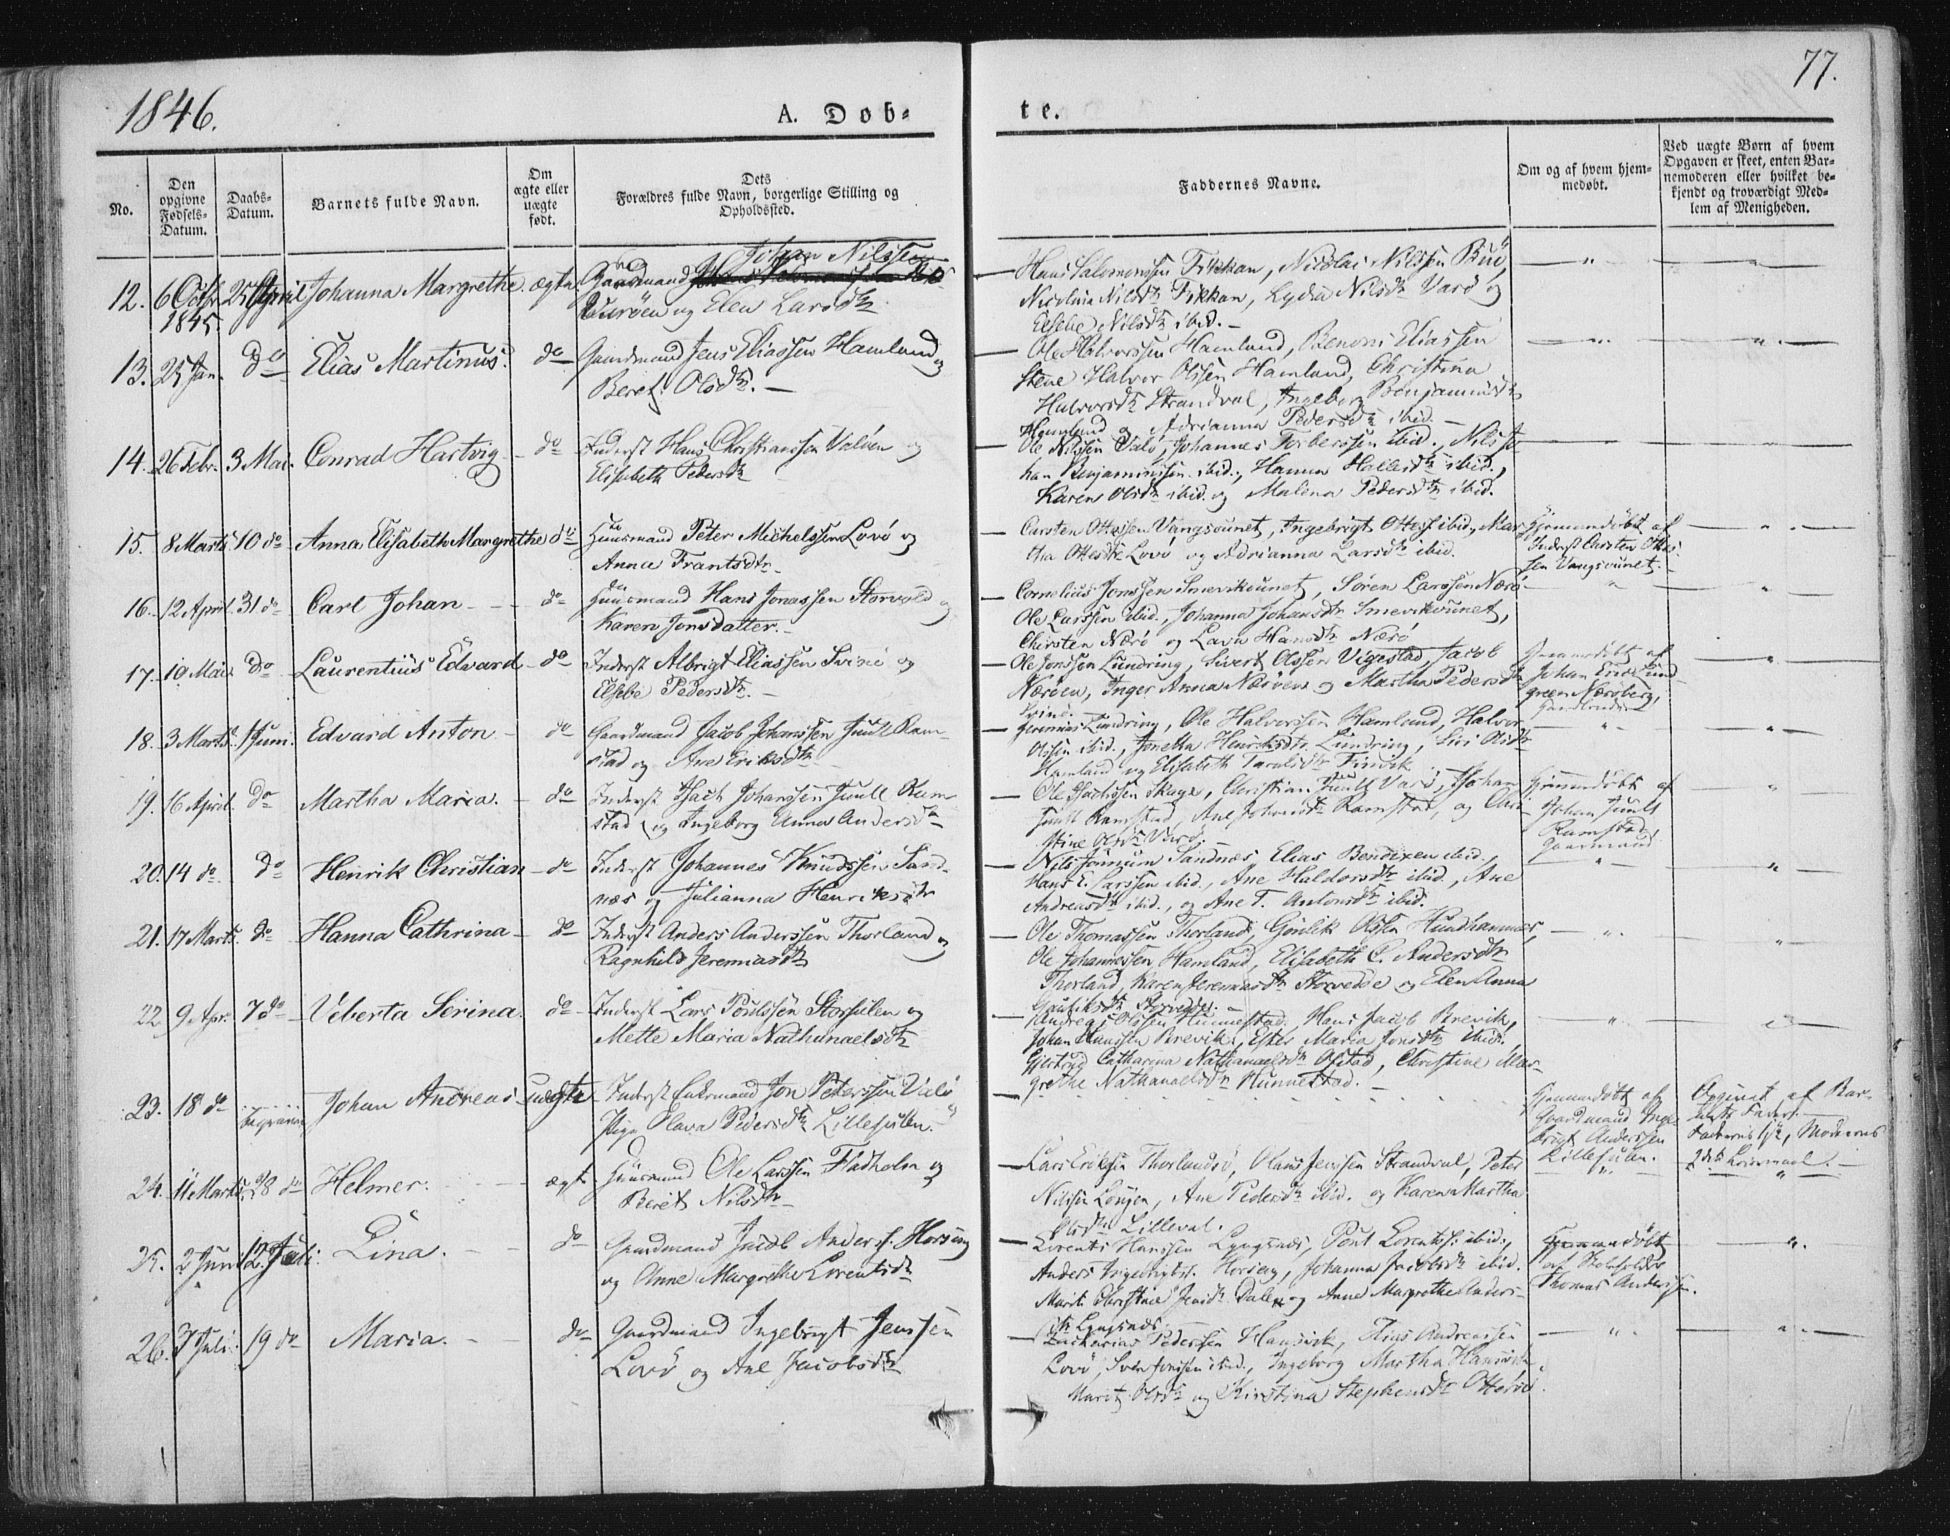 1846.
A. Dob-
te.
77.
No.
Den opgivne Fødsels-Datum.
Daabs-Datum.
Barnets fulde Navn.
Om ægte eller uægte født.
Dets Forældres fulde Navn, borgerlige Stilling og Opholdssted.
Faddernes Navne.
Om og af hvem hjem-medøbt.
Ved uægte Børn af hvem Opgaven er skeet, enten Bar-nemoderen eller hvilket be-kjendt og troværdigt Med-lem af Menigheden.
12. 6 Octbr 1845. 25 April Johanna Margrethe. ægte Gaardmand Johan Nilssen
og Elen Larsdtr
Hans Salomonssen Fikkan, Nicolai Nilssen
Nicolina Nilsdtr Fikkan, Lydia Nilsdtr Varø og
Elsebe Nilsdtr ibid. —
13. 25 Jan. do Elias Martinus. do Gaardmand Jens Eliassen Hamland og
Beret Olsdtr. —
Ole Halvorssen Hamland, Benoni Eliassen
Stene Halvor Olssen Hamland, Christina
Halvorsdtr Strandval, Ingeborg Benjaminsdtr
Hamland og Adrianna Pedersdtr ibid. —
14. 26 Febr. 3 Mai. Conrad Hartvig — do Inderst Hans Christianssen Valøen og
Elisabeth Pedersdtr
Ole Nilssen Valø, Johannes Torberssen ibid., Nils Jo-
han Benjaminssen ibid., Hanna
Karen Olsdtr ibid. og Malena Pedersdtr ibid.
15. 8 Marts 10 do Anna Elisabeth Margrethe do Huusmand Peter Michelssen Lovø og
Anna Frantsdtr —
Carsten Ottessen Vangsounet, Ingebrigt Ottess. ibid, Mar-
tha Ottesdtr Lovø og Adrianna Larsdtr ibid.
Hjemmedøbt af
Inderst Carsten Ottes-
sen Vangsounet. —
16. 12 April. 31 do Carl Johan — do Huusmand Hans Jonassen Storvold og
Karen Jonsdatter. —
Cornelius Jonssen Smevikounet, Søren Larssen Nærø
Ole Larssen ibid., Johanna Johansdtr Smevikounet,
Chirsten Nærø og Lava Hansdtr Nærø
17. 10 Mai. do Laurentius Edvard — do Inderst Albrigt Eliassen Svinø og
Elsebe Pedersdtr. —
Ole Jonssen Lundring, Sivert Olssen Vigestad, Jacob
Nærøen, Inger Anna Nærøen og Martha Pedersdtr
Svinø.
Hjemmedøbt af
Johan Eric Lund-
green Nærøberg,
18. 3 Marts. 1 Juni. Edvard Anton — do Gaardmand Jacob Johanssen Juul Ram-
stad og Ane Eriksdtr
Lundring, Ole Halvorssen Hamland, Halvor
Olssen ibid., Jonetta Henriksdtr. Lundring, Siri Olsdtr
Hamland og Elisabeth
19. 16 April. do Martha Maria. — do Inderst Isach Johanssen Juull Ram-
stad og Ingeborg Anna Andersdtr
Ole Isachssen Skage, Christian Juull Varø, Johan
Juull Ramstad, Ane Johansdtr Ramstad, og
Stine Olsdtr Varø.
Hjemmedøbt af
Johan Juull
Ramstad,
Gaardmand
20. 14 do do Henrik Christian — do Inderst Johannes Knudssen Sand-
næs og Julianna Henriksdtr
Nils Sandnæs, Elias Bendixen ibid.,
Hans E. Larssen ibid., Ane Haldorsdtr ibid., Ane
Andreasdtr ibid., og Ane T. Antonsdtr ibid.
21. 17 Marts. do Hanna Cathrina — do Inderst Anders Anderssen Thorland og
Ragnhild Jeremiasdtr
Ole Thomassen Thorland, Gunlik Olssen Hundhammer,
Ole Johannessen Hamland, Elisabeth C. Andersdtr
Thorland, Karen Jeremiasdtr og Elen Anna
22 9 Apr. 7 do Veberta Serina. do Inderst Lars Poulssen Storsulen og
Mette Maria Nathanaelsdtr
Andreas Olssen Hunnestad, Hans Jacob Brevik,
Johan Hanssen Brevik, Ester Maria Jonsdtr ibid.,
Gjertrud Catharina Nathanaelsdtr Ofstad, Christine Mar-
grethe Nathanaelsdtr Hunnestad. —
23. 18 do Johan Andreas uægte Inderst Enkemand Jon Peterssen Valø
Pige Olava Pedersdtr Lillesulen.
Hjemmedøbt af
Gaardmand Inge-
brigt Anderssen
Lillesulen.
Opgivet af Bar-
nets Fader.
Faderens 1ste, Moderens
2det Leiermaal. —
24. 11 Marts. 28 do Helmer. ægte Huusmand Ole Larssen Fladholm og
Berit Nilsdtr —
Lars Erikssen Thorlandsø, Olaus Jenssen Strandval, Peter
Nilssen, Ane Pedersdtr ibid. og Karen Martha
Olsdtr Lilleval.
25. 2 Juni 12 Juli. Lina. — do Gaardmand Jacob Anderss. Horseng
og Anne Margrethe Lorentsdtr
Lorents Hanssen Lyngsnæs, Pent Lorentss. ibid.,
Anders Ingebrigtss. Horseng, Johanna Jacobsdtr ibid.
Marit Christine og Anne Margrethe Anders-
dtr Lyngsnæs.
Hjemmedøbt
af Skoleholder
Thomas Anderssen.
26. 3 Juli. 19 do Maria. — do Gaardmand Ingebrigt Jenssen
Lovø og Ane Jacobsdtr
Zacharias Pederssen, Elias Andreassen
Lovø, Sven Jonssen ibid., Ingeborg Martha Hansdtr
Marit Olsdtr og Kirstina Stephensdtr Otterø.